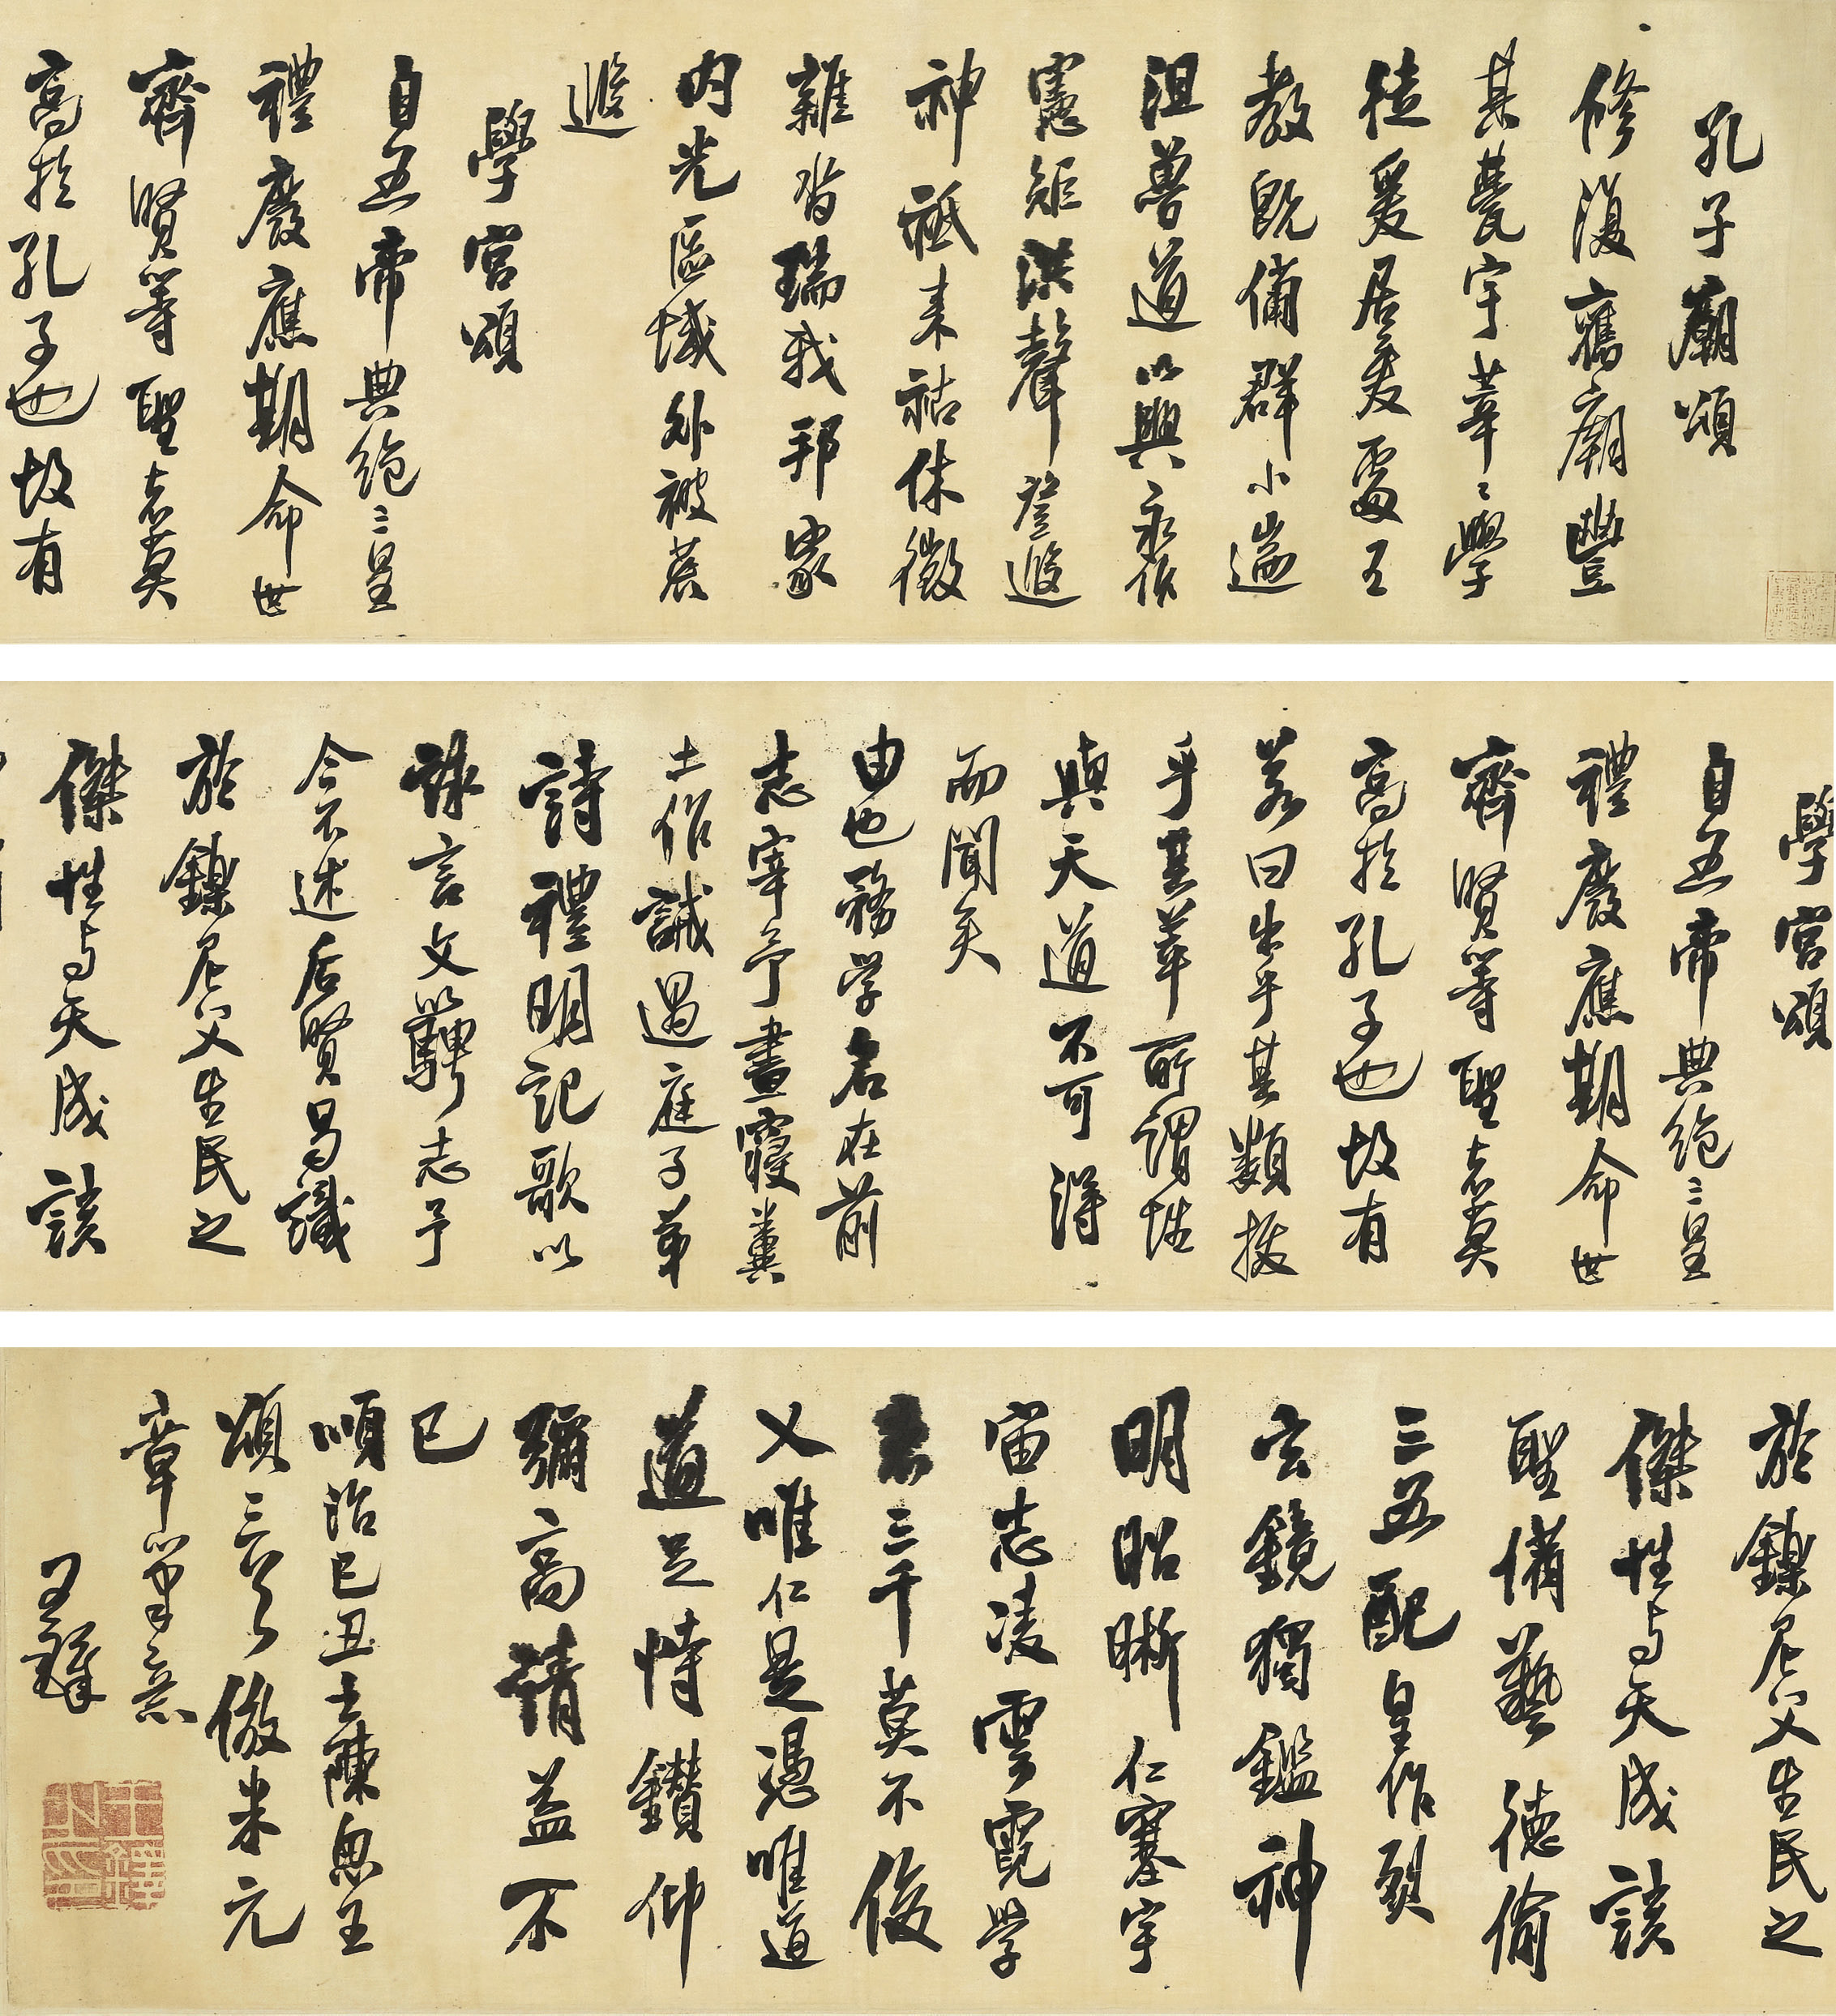 孔子廟頌
修復舊廟豐
其甍宇莘〻學
徒爰居爰處王
教既備群小遄
沮魯道以興永作
憲矩洪聲登遐
神祗来祜休徵
雜沓瑞我邦家
内光區域外被荒
遐
學宮頌
自五帝典絕三皇
禮廢應期命世
齊賢等聖者莫
高於孔子也故有
學宮頌
自五帝典絕三皇
禮廢應期命世
齊賢等聖者莫
高於孔子也故有
若曰出乎其類拔
乎其萃所謂性
與天道不可得
而聞矣
由也務学名在前
志宰予晝寢糞
土作誡過庭子弟
詩禮明記歌以
詠言文以騁志予
今不述后賢曷識
於鑠尼父生民之
傑性与天成該
於鑠尼父生民之
傑性与天成該
聖備藝德倫
三五配皇作烈
玄鏡獨鑑神
明昭晰仁塞宇
宙志凌雲霓学
者三千莫不俊
乂唯仁是憑唯道
道足恃鑽仰
彌高請益不
已
順治己丑書陳思王
頌倣米元
章筆意
王鐸
王鐸之印